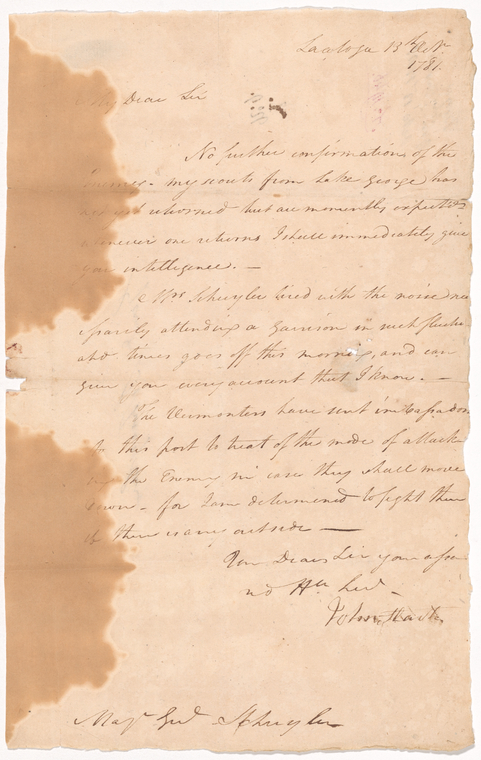 Saratoga 13th Octr
1781.
My Dear Sir
No further confirmation of the
Enemy - my scouts from Lake George has
not yet returned but are momently expected
whenever one returns I shall immediately give
you intelligence. —
Mrs Schuyler tired with the noise ne
cessarily attending a Garrison in such
and times goes off this morning, and can
give you every account that I know. —
The Vermonters have sent imbassadors
to this post to treat of the mode of attack
ing the Enemy in case they shall move
down - for I am determined to fight them
if there is any outside —
I am Dear Sir your
nd Hble Servt
John
Majr Genl Schuyler